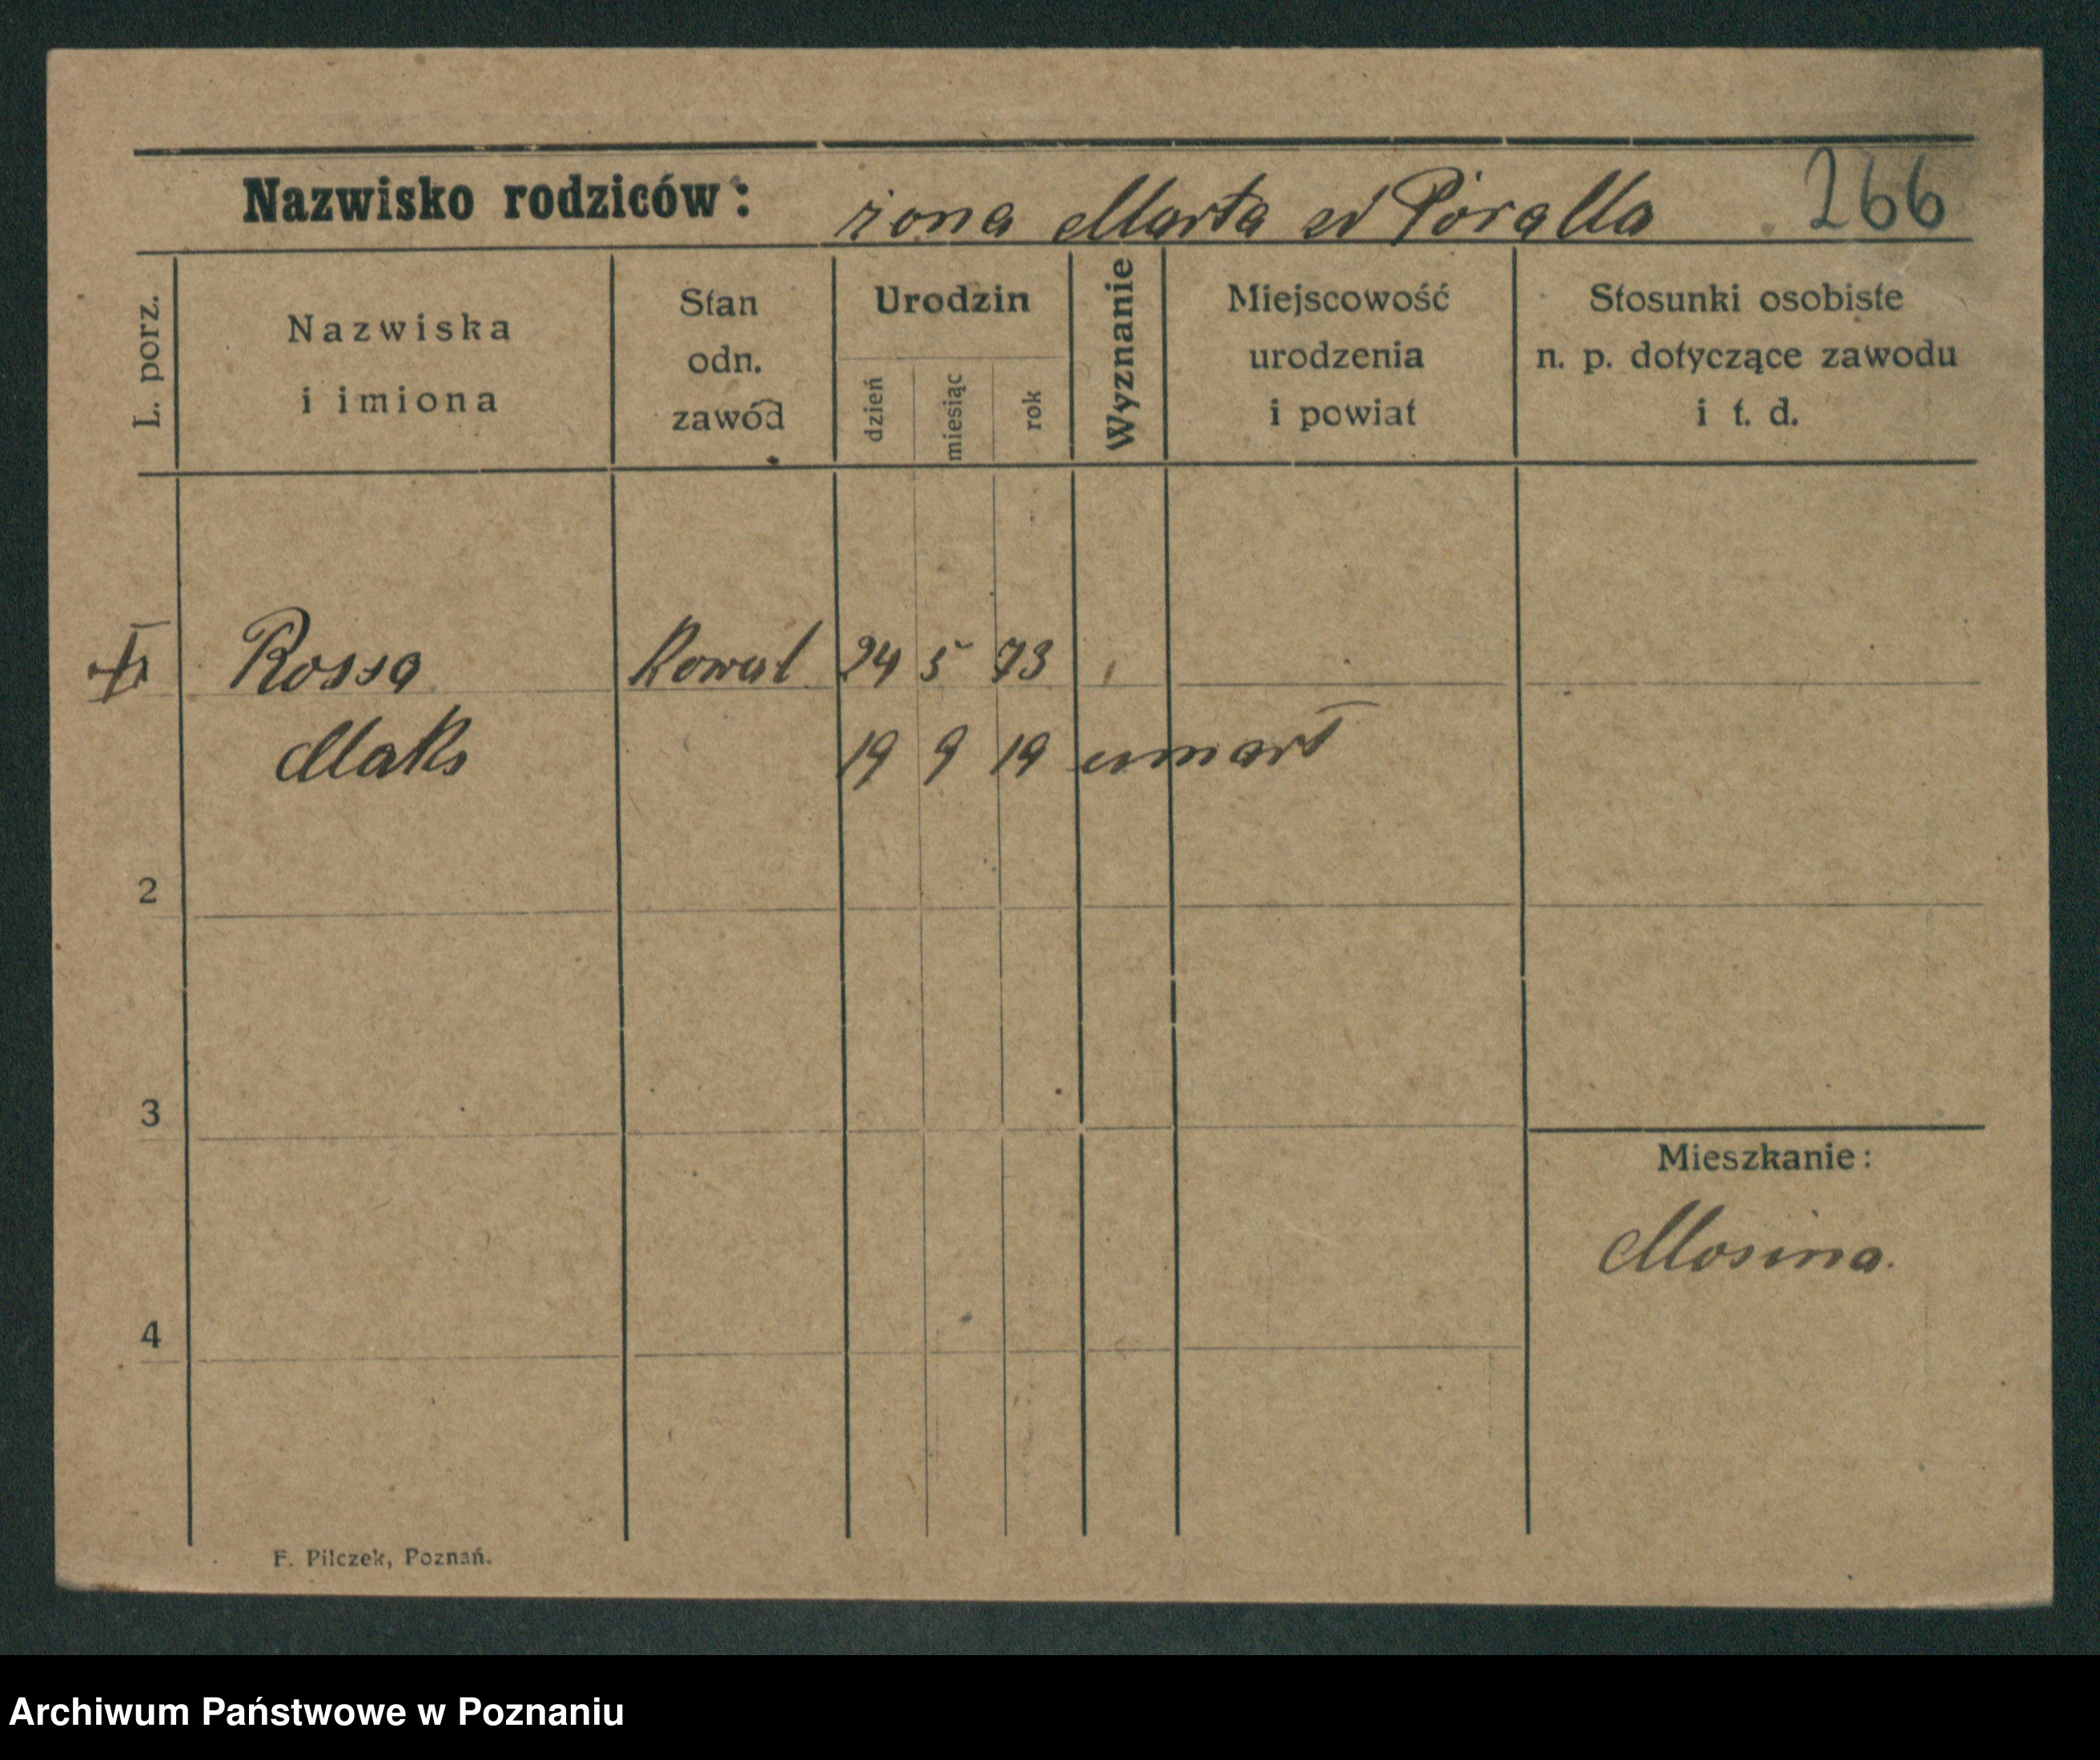 266
Nazwisko rodziców: żona Marta zd Pòralla
L. porz.
Nazwiska i imiona
Stan odn. zawód
Urodzin
dzień miesiąc rok
Wyznanie
Miejscowość urodzenia i powiat
Stosunki osobiste n. p. dotyczące zawodu i t. d.
Rossa Kowal 24 5 73
Maks 19 9 19 umarł
2
3
Mieszkanie:
Mosina.
4
F. Pilczek, Poznań.
Archiwum Państwowe w Poznaniu